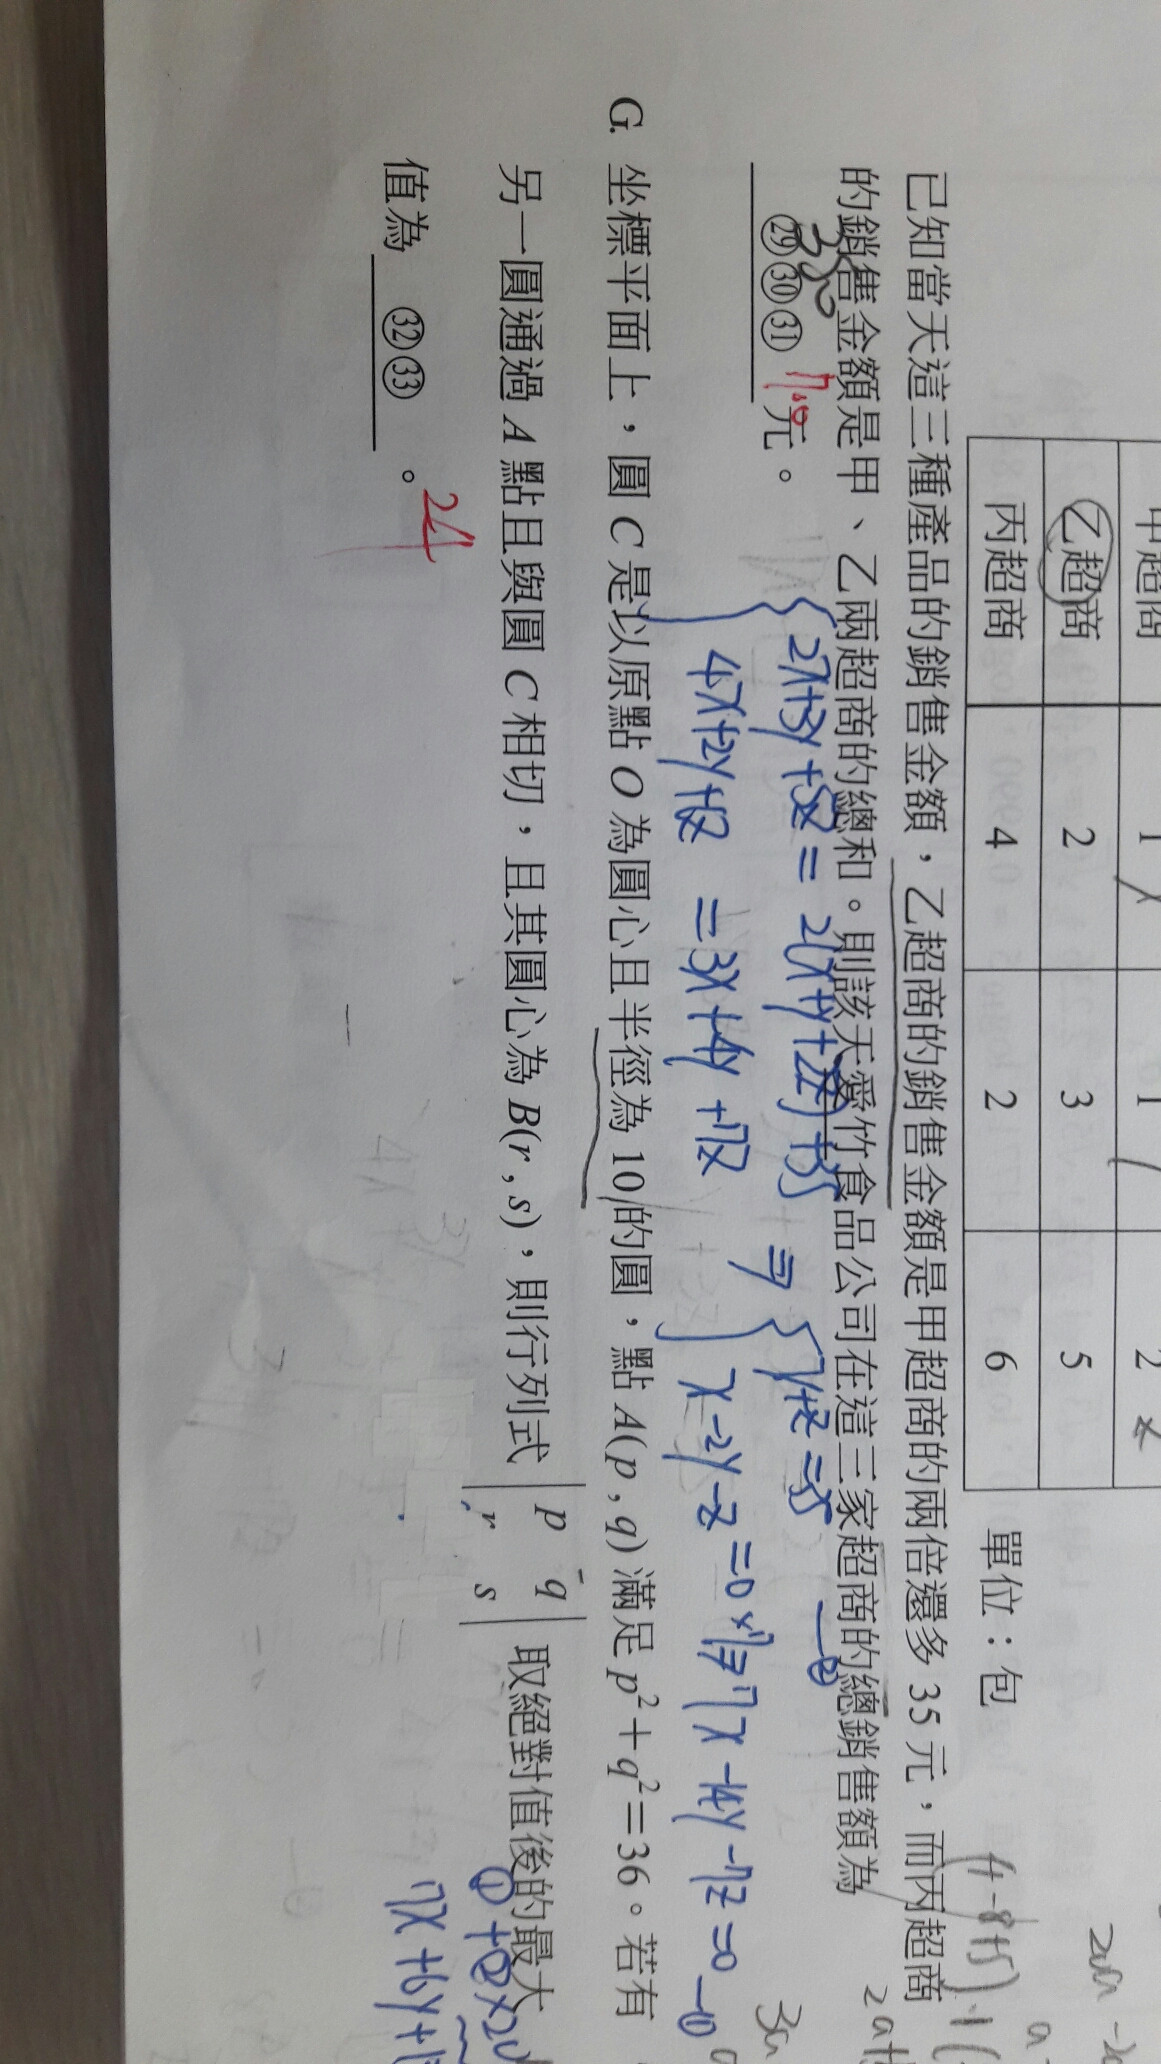 甲超商 1 1 2
乙超商 2 3 5
丙超商 4 2 6
單位：包
已知當天這三種產品的銷售金額，乙超商的銷售金額是甲超商的兩倍還多 35 元，而丙超商
的銷售金額是甲、乙兩超商的總和。則該天愛竹食品公司在這三家超商的總銷售額為
㉙㉚㉛ 元。
350
2x+3y+5z = 2(x+y+2z)+35 ⇒ y+z=35 —②
4x+2y+6z = 3x+4y+7z
x-2y-z=0 ×7⇒ 7x-14y-7z=0 —①
G. 坐標平面上，圓 C 是以原點 O 為圓心且半徑為 10 的圓，點 A(p , q) 滿足 p²＋q²＝36。若有
另一圓通過 A 點且與圓 C 相切，且其圓心為 B(r , s)，則行列式 | p q | 取絕對值後的最大
| r s |
值為 ㉜㉝ 。
24
①+②×20
7x+6y+1